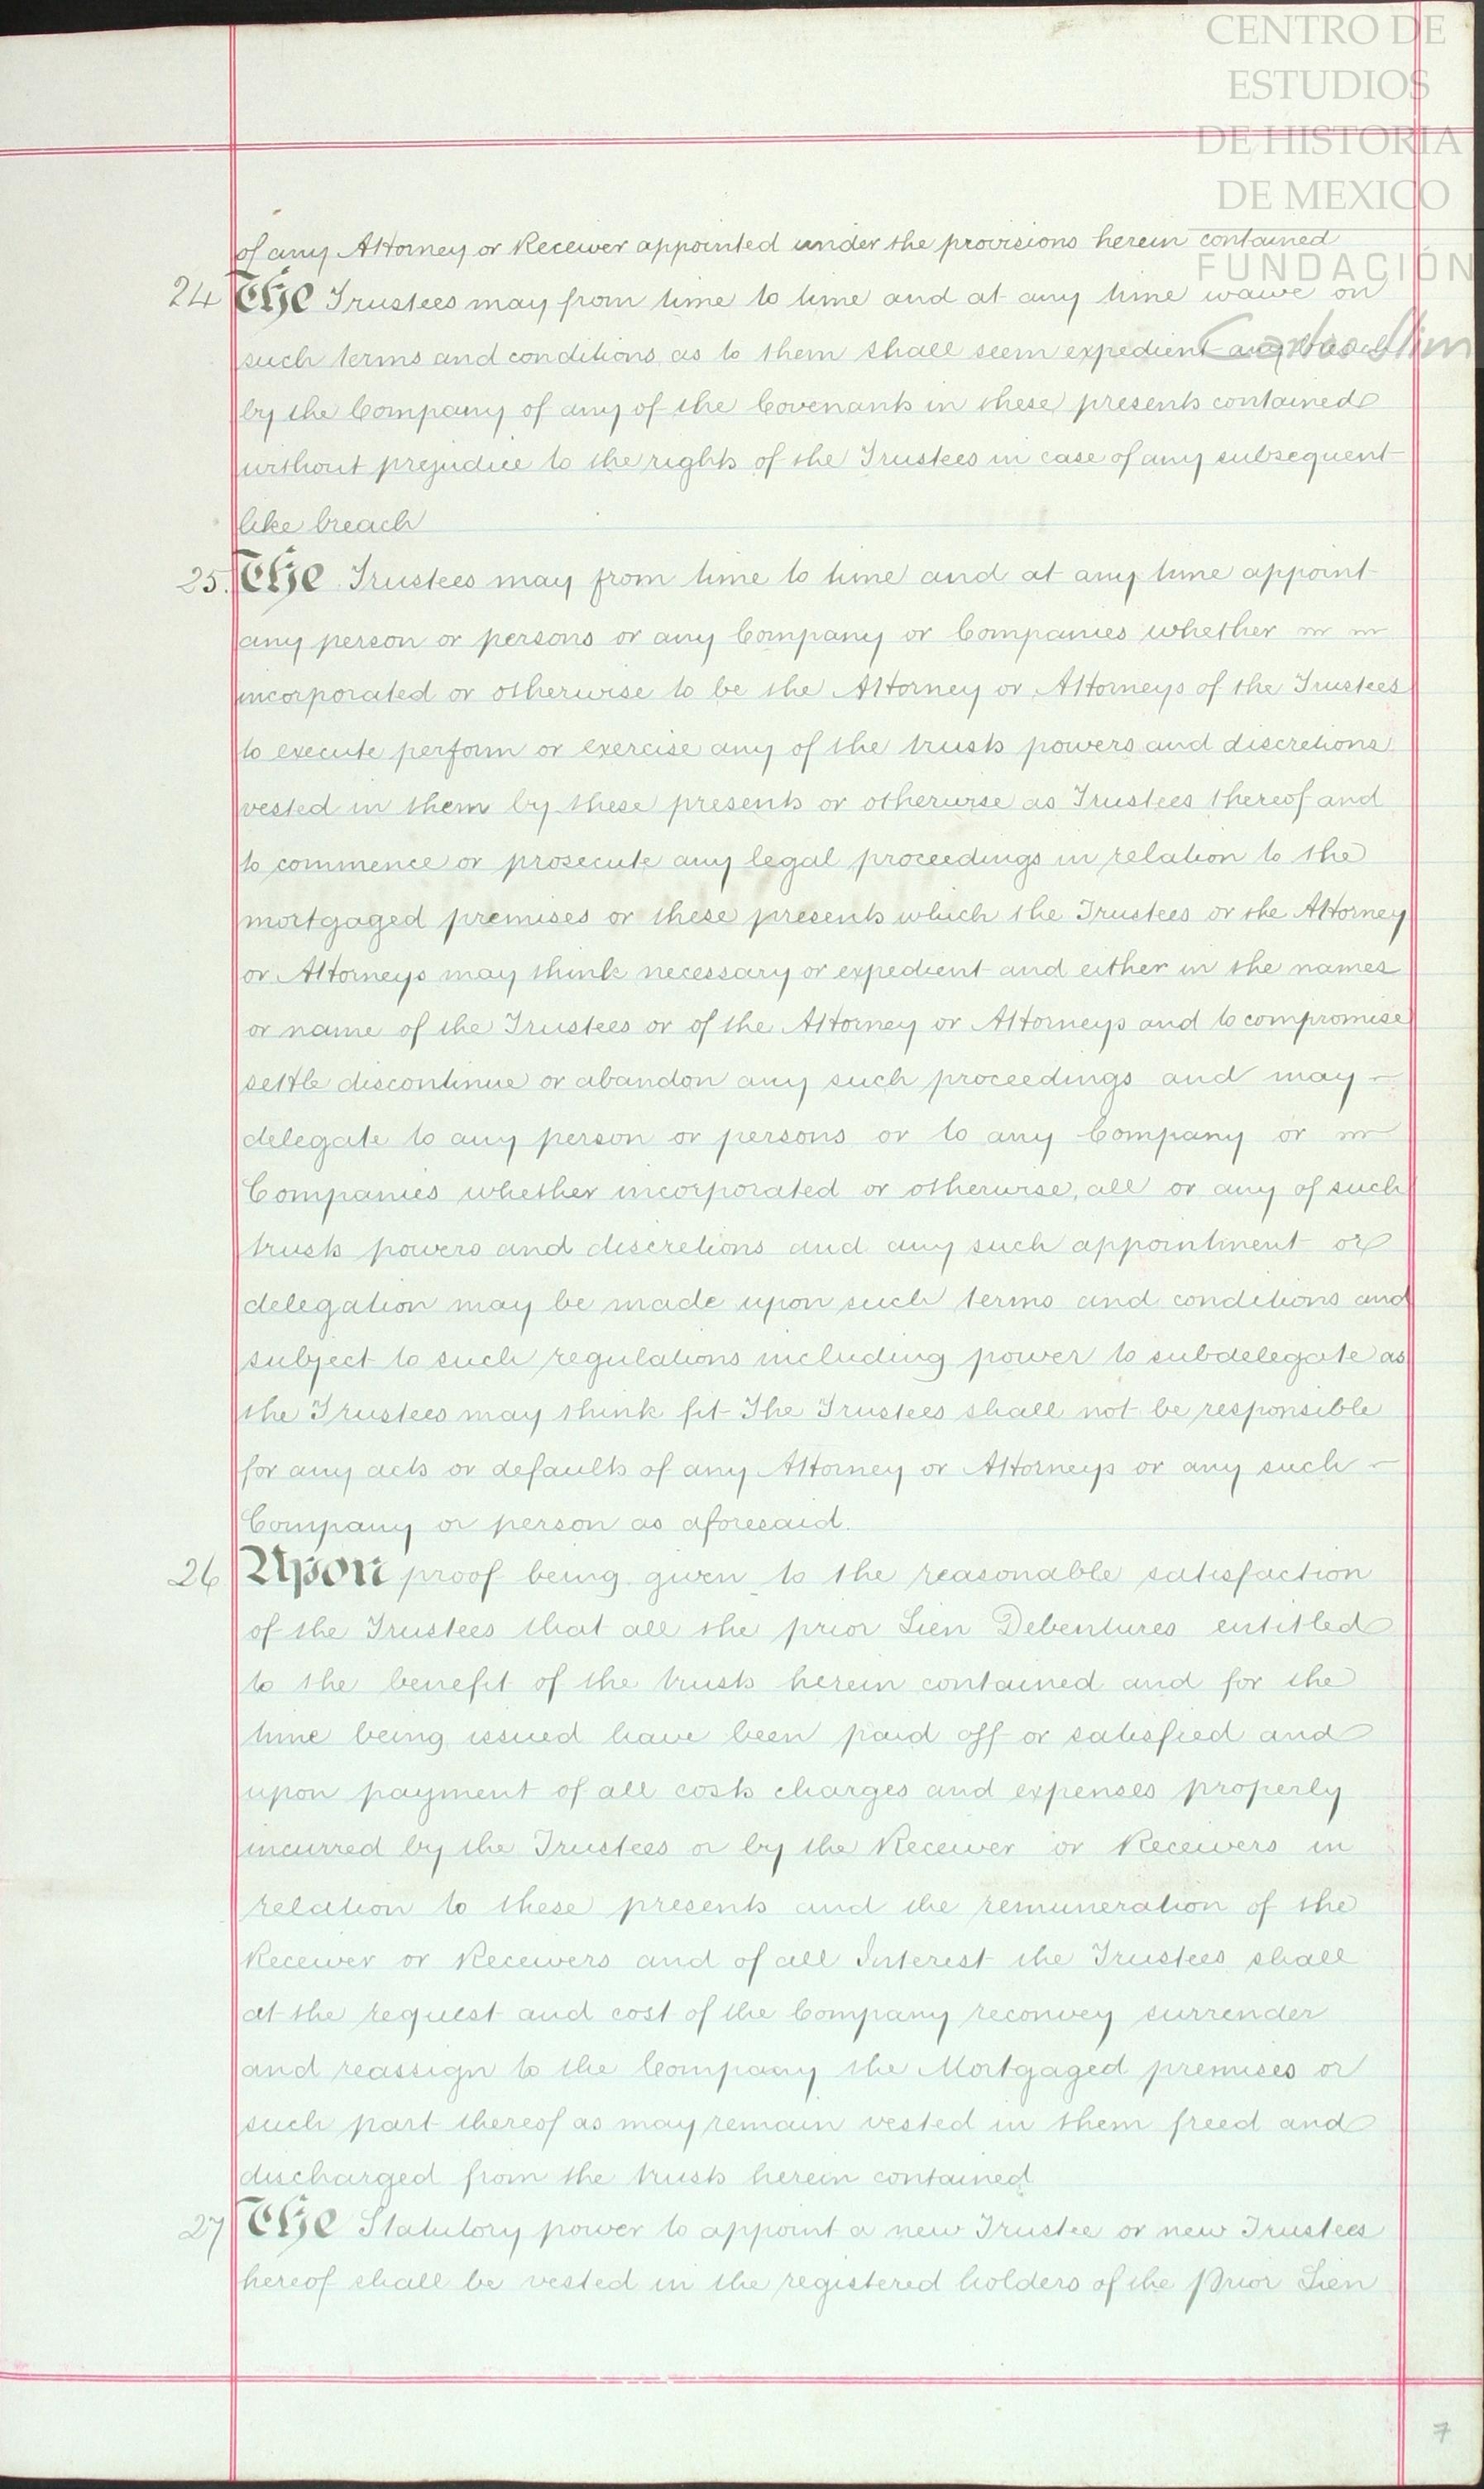 CENTRO DE
ESTUDIOS
DE HISTORIA
DE MEXICO
FUNDACIÓN
Carlos Slim
of any Attorney or Receiver appointed under the provisions herein contained
24 The Trustees may from time to time and at any time waive on
such terms and conditions as to them shall seem expedient any breach
by the Company of any of the Covenants in these presents contained
without prejudice to the rights of the Trustees in case of any subsequent
like breach
25. The Trustees may from time to time and at any time appoint
any person or persons or any Company or Companies whether
incorporated or otherwise to be the Attorney or Attorneys of the Trustees
to execute perform or exercise any of the trusts powers and discretions
vested in them by these presents or otherwise as Trustees thereof and
to commence or prosecute any legal proceedings in relation to the
mortgaged premises or these presents which the Trustees or the Attorney
or Attorneys may think necessary or expedient and either in the names
or name of the Trustees or of the Attorney or Attorneys and to compromise
settle discontinue or abandon any such proceedings and may
delegate to any person or persons or to any Company or
Companies whether incorporated or otherwise, all or any of such
trusts powers and discretions and any such appointment or
delegation may be made upon such terms and conditions and
subject to such regulations including power to subdelegate as
the Trustees may think fit The Trustees shall not be responsible
for any acts or defaults of any Attorney or Attorneys or any such
Company or person as aforesaid.
26 Upon proof being given to the reasonable satisfaction
of the Trustees that all the prior Lien Debentures entitled
to the benefit of the trusts herein contained and for the
time being issued have been paid off or satisfied and
upon payment of all costs charges and expenses properly
incurred by the Trustees or by the Receiver or Receivers in
relation to these presents and the remuneration of the
Receiver or Receivers and of all Interest the Trustees shall
at the request and cost of the Company reconvey surrender
and reassign to the Company the Mortgaged premises or
such part thereof as may remain vested in them freed and
discharged from the trusts herein contained
27 The Statutory power to appoint a new Trustee or new Trustees
hereof shall be vested in the registered holders of the Prior Lien
7